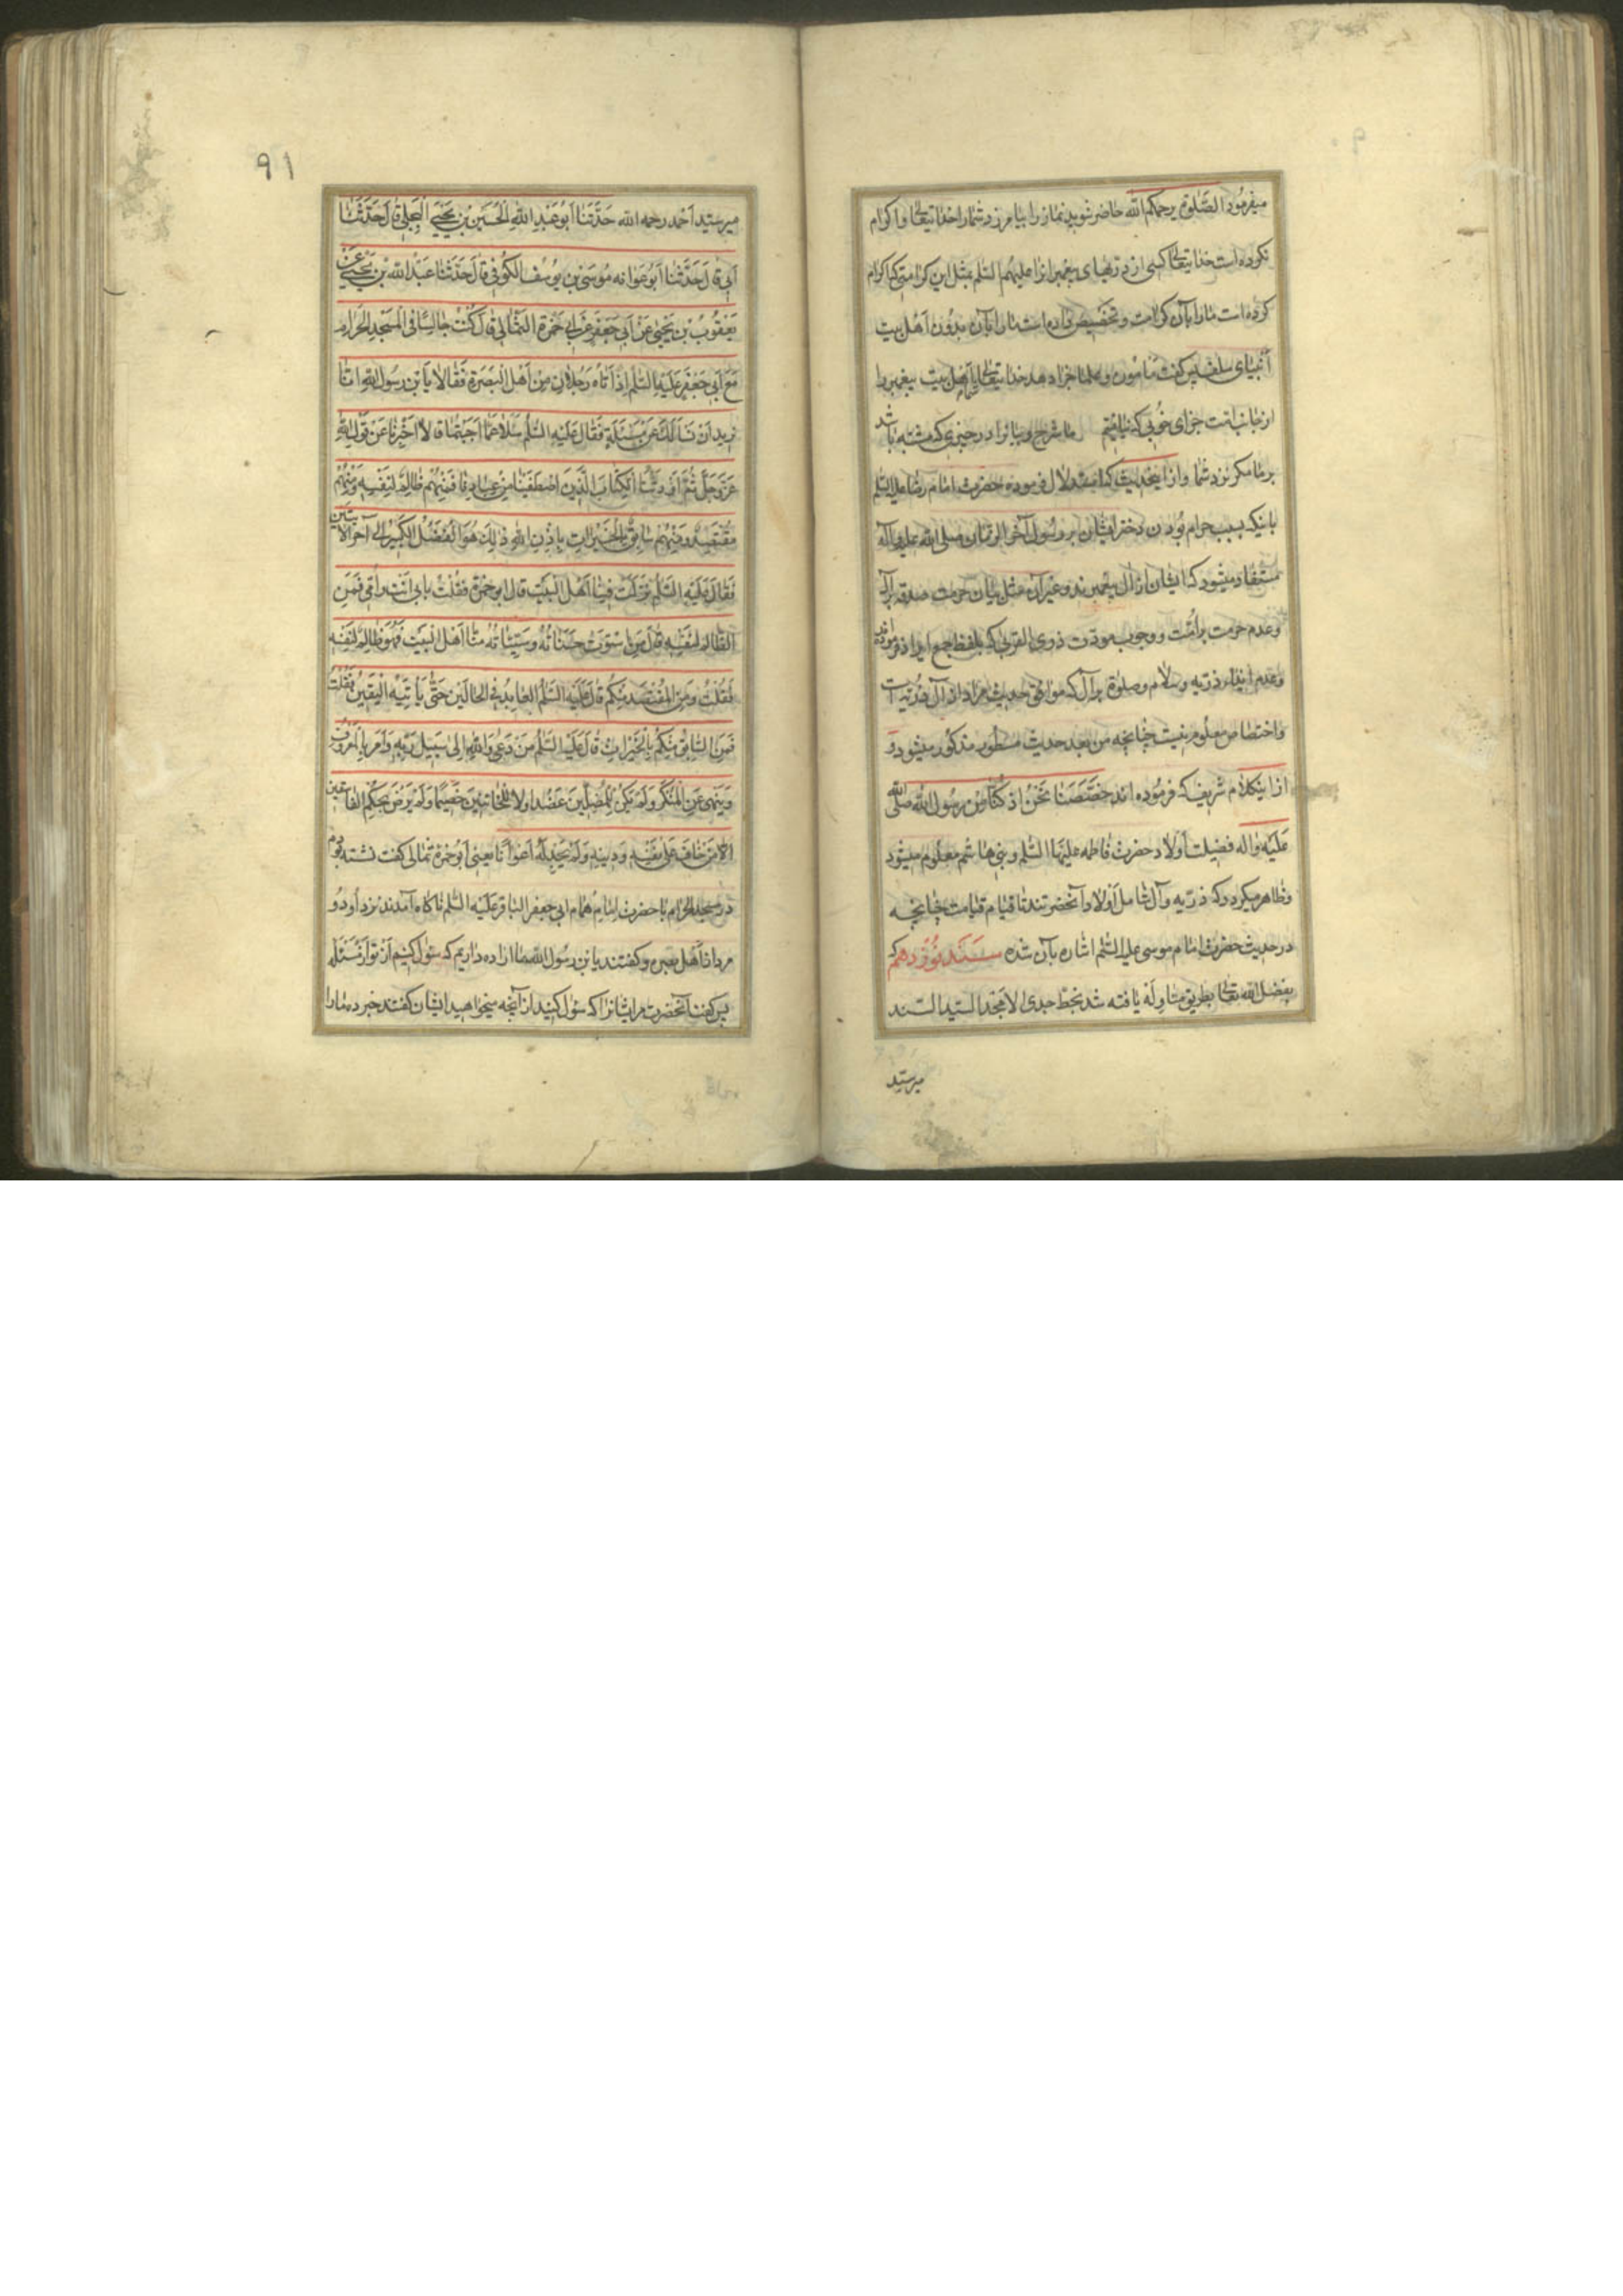 میفرمود الصّلوة یرحمکم الله حاضر شوید نماز را بیامرزد شما را خدایتعالی و اکرام
نکرده است خدایتعالی کسی از ذریهای پیغمبرانرا علیهم السّلم بمثل این کرامتی که اکرام
کرده است ما را بآن کرامت و تخصیص داده است ما را بآن بدون اهل بیت
انبیای سلف پس گفت مامون و علما جزا دهد خدایتعالی شما اهل بیت پیغمبر را
از جانب امت جزای خوبی که نیافتیم ما شرح و بیانرا در چیزی که مشتبه باشد
بر ما مگر نزد شما و از اینحدیث که استدلال فرموده حضرت امام رضا علیه السّلم
باینکه بسبب حرام بودن دختر ایشان بر رسول آخر الزمان صلی الله علیه و آله
مستفاد میشود که ایشان از آل پیغمبرند و غیر آن مثل بیان حرمت صدقه بر آل
و عدم حرمت بر امّت و وجوب مودّت ذوی القربی که بلفظ جمع ایراد فرموده‌اند
و عدم ایذاء ذریه و سلام و صلوة بر آل که موافق حدیث مراد از آل ذریه است
و اختصاص معلوم نیست چنانچه من بعد حدیث مسطور مذکور میشود و
از اینکلام شریف که فرموده اند خصّصنا نحن اذ کنّا من رسول الله صلی الله
علیه واله فضیلت اولاد حضرت فاطمه علیها السّلم و بنی هاشم معلوم میشود
و ظاهر میگردد که ذریّه و آل شامل اولاد آنحضرتند تا قیام قیامت چنانچه
در حدیث حضرت امام موسی علیه السّلم اشاره بآن شده سند نوزدهم که
بفضل الله تعالی بطریق مناوله یافته شد بخط جدی الامجد السید السند
میرسیّد
٩١
میرسیّد احمد رحمه الله حَدَّثَنا اَبُو عَبْدِ اللهِ الْحُسَین بْنِ یَحْیَی الْبَجَلِی قالَ حَدَّثَنا
اَبی قالَ حَدَّثَنا اَبُو عَوانه مُوسَی بْنِ یوُسُف الکُوفی قالَ حَدَّثَنا عَبْدُ الله بْنِ یَحْیَی عَنْ
یَعْقُوبَ بْنِ یَحْیی عَنْ اَبی جَعْفَرٍ عَنْ اَبی حَمْزَة الثُّمالی قالَ کُنْتُ جالِسًا فِی الْمَسْجِدِ الْحَرامِ
مَعَ اَبی جَعْفَرٍ عَلَیْهِ السَّلم اِذْ اَتاهُ رَجُلانِ مِنْ اَهْلِ الْبَصْرَةِ فَقالا یَا بْنَ رَسُولِ اللهِ اِنّا
نُریدُ اَنْ نَسْاَلَکَ عَنْ مَسْئَلَةٍ فَقالَ عَلَیْهِ السَّلم سَلا عَمّا اَحْبَبْتُما قالا اَخْبِرْنا عَنْ قَوْلِ اللهِ
عَزَّ وَجَلَّ ثُمَّ اَوْرَثْنَا الْکِتابَ الَّذینَ اصْطَفَیْنا مِنْ عِبادِنا فَمِنْهُمْ ظالِمٌ لِنَفْسِهِ وَمِنْهُمْ
مُقْتَصِدٌ وَمِنْهُمْ سابِقٌ بِالْخَیْراتِ بِاِذْنِ اللهِ ذلِکَ هُوَ الْفَضْلُ الْکَبیر اِلی آخر الایتین
فَقالَ عَلَیْهِ السَّلم نَزَلَتْ فینا اَهْلَ الْبَیْتِ قالَ ابوحمزة فَقُلْتُ بِاَبی اَنْتَ وَاُمّی فَمَنِ
الظّالِمُ لِنَفْسِهِ قالَ مَنِ اسْتَوَتْ حَسَناتُهُ وسَیِّئاتُهُ مِنّا اَهْلَ الْبَیْتِ فَهُوَ ظالِمٌ لِنَفْسِهِ
فَقُلْتُ وَمَنِ الْمُقْتَصِدُ مِنْکُم قالَ عَلَیْهِ السَّلم الْعابِدُ فِی الْحالَیْنِ حَتّی یَأْتِیَهُ الْیَقینُ فَقُلْتُ
فَمَنِ السّابِقُ مِنْکُمْ بِالْخَیْراتِ قالَ عَلَیْهِ السَّلم مَنْ دَعی وَاللهِ اِلی سَبیلِ رَبِّهِ وَاَمَرَ بِالْمَعْرُوفِ
وَیَنْهی عَنِ الْمُنْکَرِ وَلَمْ یَکُنْ لِلْمُضِلّینَ عَضُدًا وَلا لِلْخائِنینَ خَصیمًا وَلَمْ یَرْضَ بِحُکْمِ الْفاسقین
اِلاّ مَنْ خافَ عَلی نَفْسِهِ وَدینِهِ وَلَمْ یَجِدْ لَهُ اَعْوانًا یعنی ابوحمزه ثمالی گفت نشسته بودم
در مسجد الحرام با حضرت امام همام ابی جعفر الباقر علیه السّلم ناگاه آمدند نزد او دو
مرد از اهل بصره و گفتند یابن رسول الله ما اراده داریم که سؤال کنیم از تو از مسئله
پس گفت آنحضرت مر ایشانرا که سؤال کنید از آنچه میخواهید ایشان گفتند خبر ده ما را